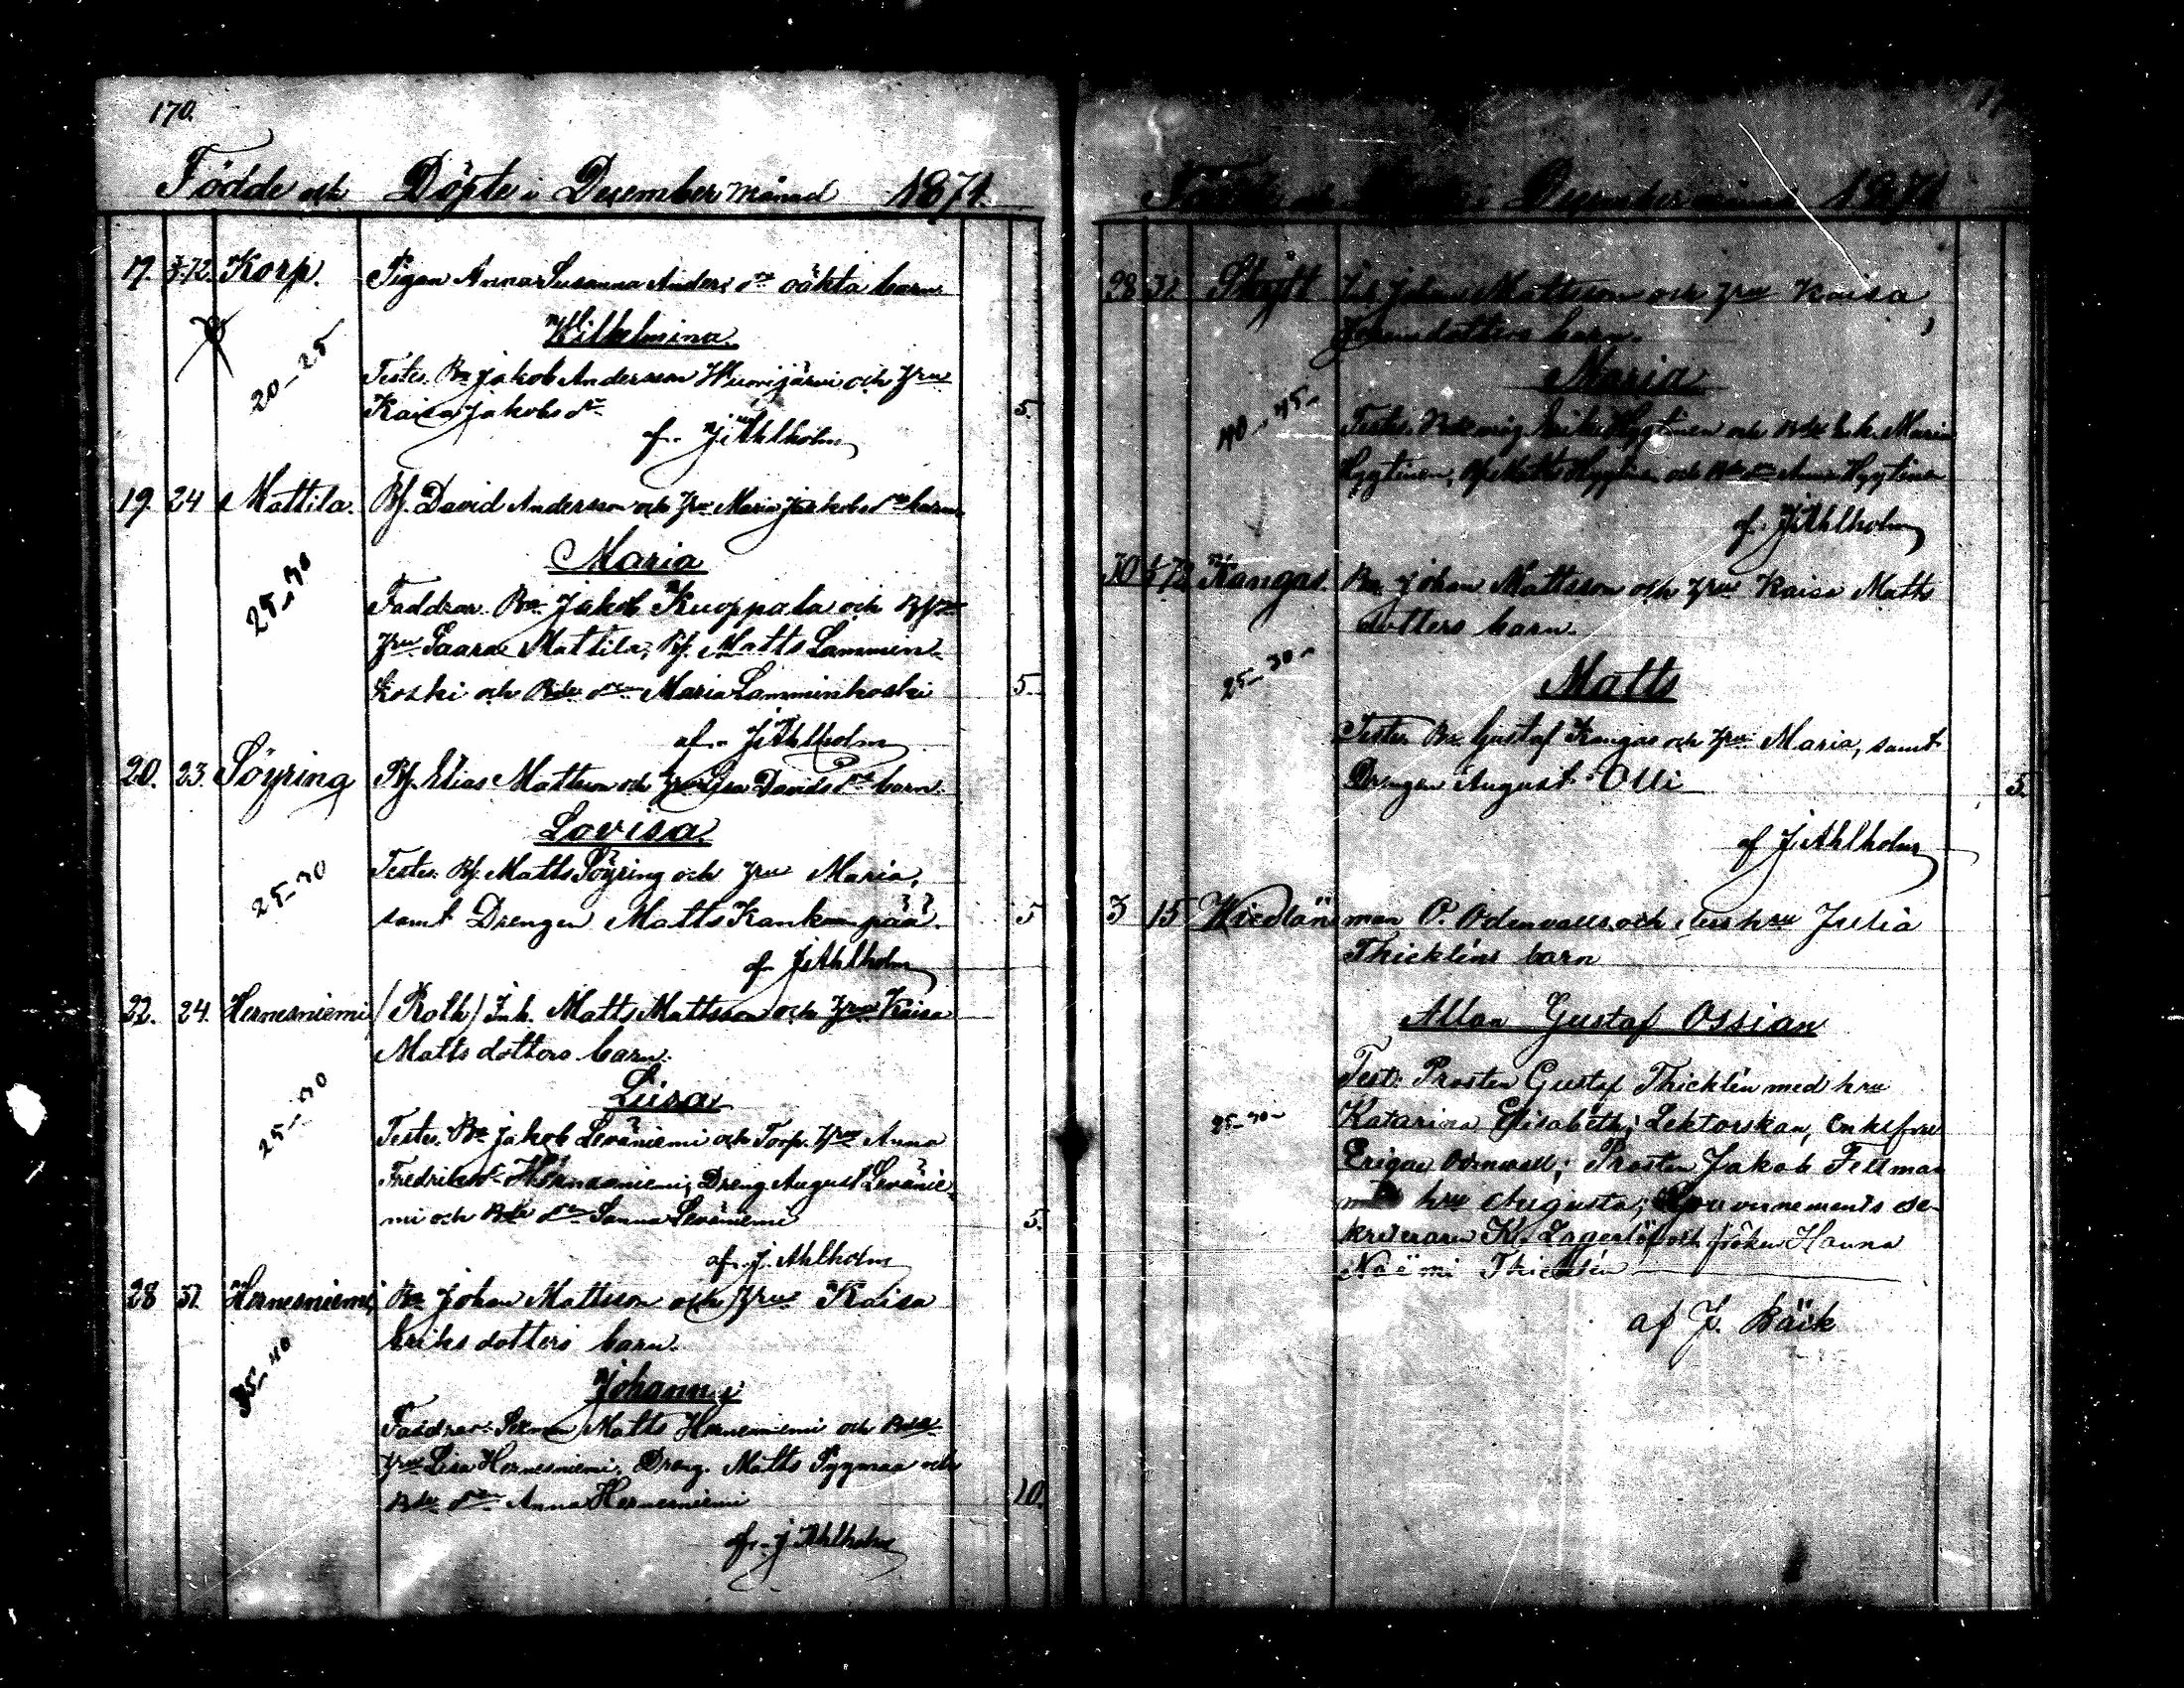 170.
Födde och Döpte i December månad 1871.
17. 3/1 72. Korp. Pigan Anna Susanna Anders dr oäkta barn
Wilhelmina.
20-25
Testes. Bn Jakob Andersson Wuorijärvi och hru
Kaisa Jakobs dr 5.
af. J Ahlholm
19. 24 Mattila. Bf. David Andersson och hru Maria Jakobs dr barn
Maria
25-30
Faddrar. Bn Jakob Kuoppala och
hru Saara Mattila; Bf. Matts Lammin-
koski och Bde dr Maria Lamminkoski 5.
af. J Ahlholm
20. 23. Söyring Bf. Elias Mattsson och hru Lisa Davids dr barn.
Lovisa.
Testes. Bf. Matts Söyring och hru Maria,
25-30
samt Drengen Matts Kankaanpää. 5
af J Ahlholm
22. 24. Hernesniemi (Roth) Inh. Matts Mattsson och hru Kaisa
Matts dotters barn.
Liisa
25-30
Testes. Bn Jakob Leväniemi och Torp. hru Anna
Fredrika Hernesniemi; Dreng August Levänie-
mi och Bde dr Sanna Leväniemi 5.
af. J. Ahlholm
28 31. Hernesniemi, Bn Johan Mattsson och hru Kaisa
Eriks dotters barn.
35-40
Johanna
Faddrar. Matts Hernesniemi och
hru Lisa Hernesniemi, Dreng. Matts Pyymaa och
Bde dr Anna Hernesniemi 10.
af. J Ahlholm
December 1871
28 31 Skytt Inh Johan Mattsson och hru Kaisa
Johansdotters barn.
Maria
40-45-
Testes. Erik Hyytinen och Maria
Hyytinen, Matts Hyytinen och Bde dr Anna Hyytinen
af. J Ahlholm
30 72 Kangas. Bn Johan Mattsson och hru Kaisa Matts
dotters barn.
25-30-
Matts
Testes. Bn Gustaf Kangas och hru Maria, samt
Drengen August Olli 5.
af J. Ahlholm
3 15 Kredlän man O. Odenvall och dess hru Julia
Thickléns barn
Allan Gustaf Ossian
Test. Prosten Gustaf Thicklén med hru
25-30- Katarina Elisabeth; Lektorskan, Enkefru
Erigae Odenvall; Prosten Jakob Fellman
med hru Augusta; Gouvernements se-
kreteraren K. Lagerlöf och fröken Hanna
Naëmi Thicklén
af J. Bäck